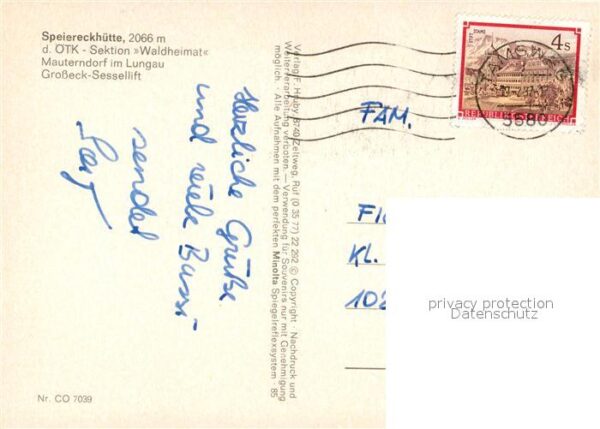 Speiereckhütte, 2066 m
d. ÖTK - Sektion »Waldheimat«
Mauterndorf im Lungau
Großeck-Sessellift
Verlag F. Hruby 8740 Zeltweg, Ruf (0 35 77) 22 292 © Copyright · Nachdruck und
Weiterverarbeitung verboten. — Verwendung für Souvenirs nur mit Genehmigung
möglich. · Alle Aufnahmen mit dem perfekten Minolta Spiegelreflexsystem 85
Herzliche Grüße
und viele Bussi
sendet
STAMS
4 S
REPUBLIK ÖSTERREICH
TAMSWEG
5580
FAM.
KL.
102
privacy protection
Datenschutz
Nr. CO 7039